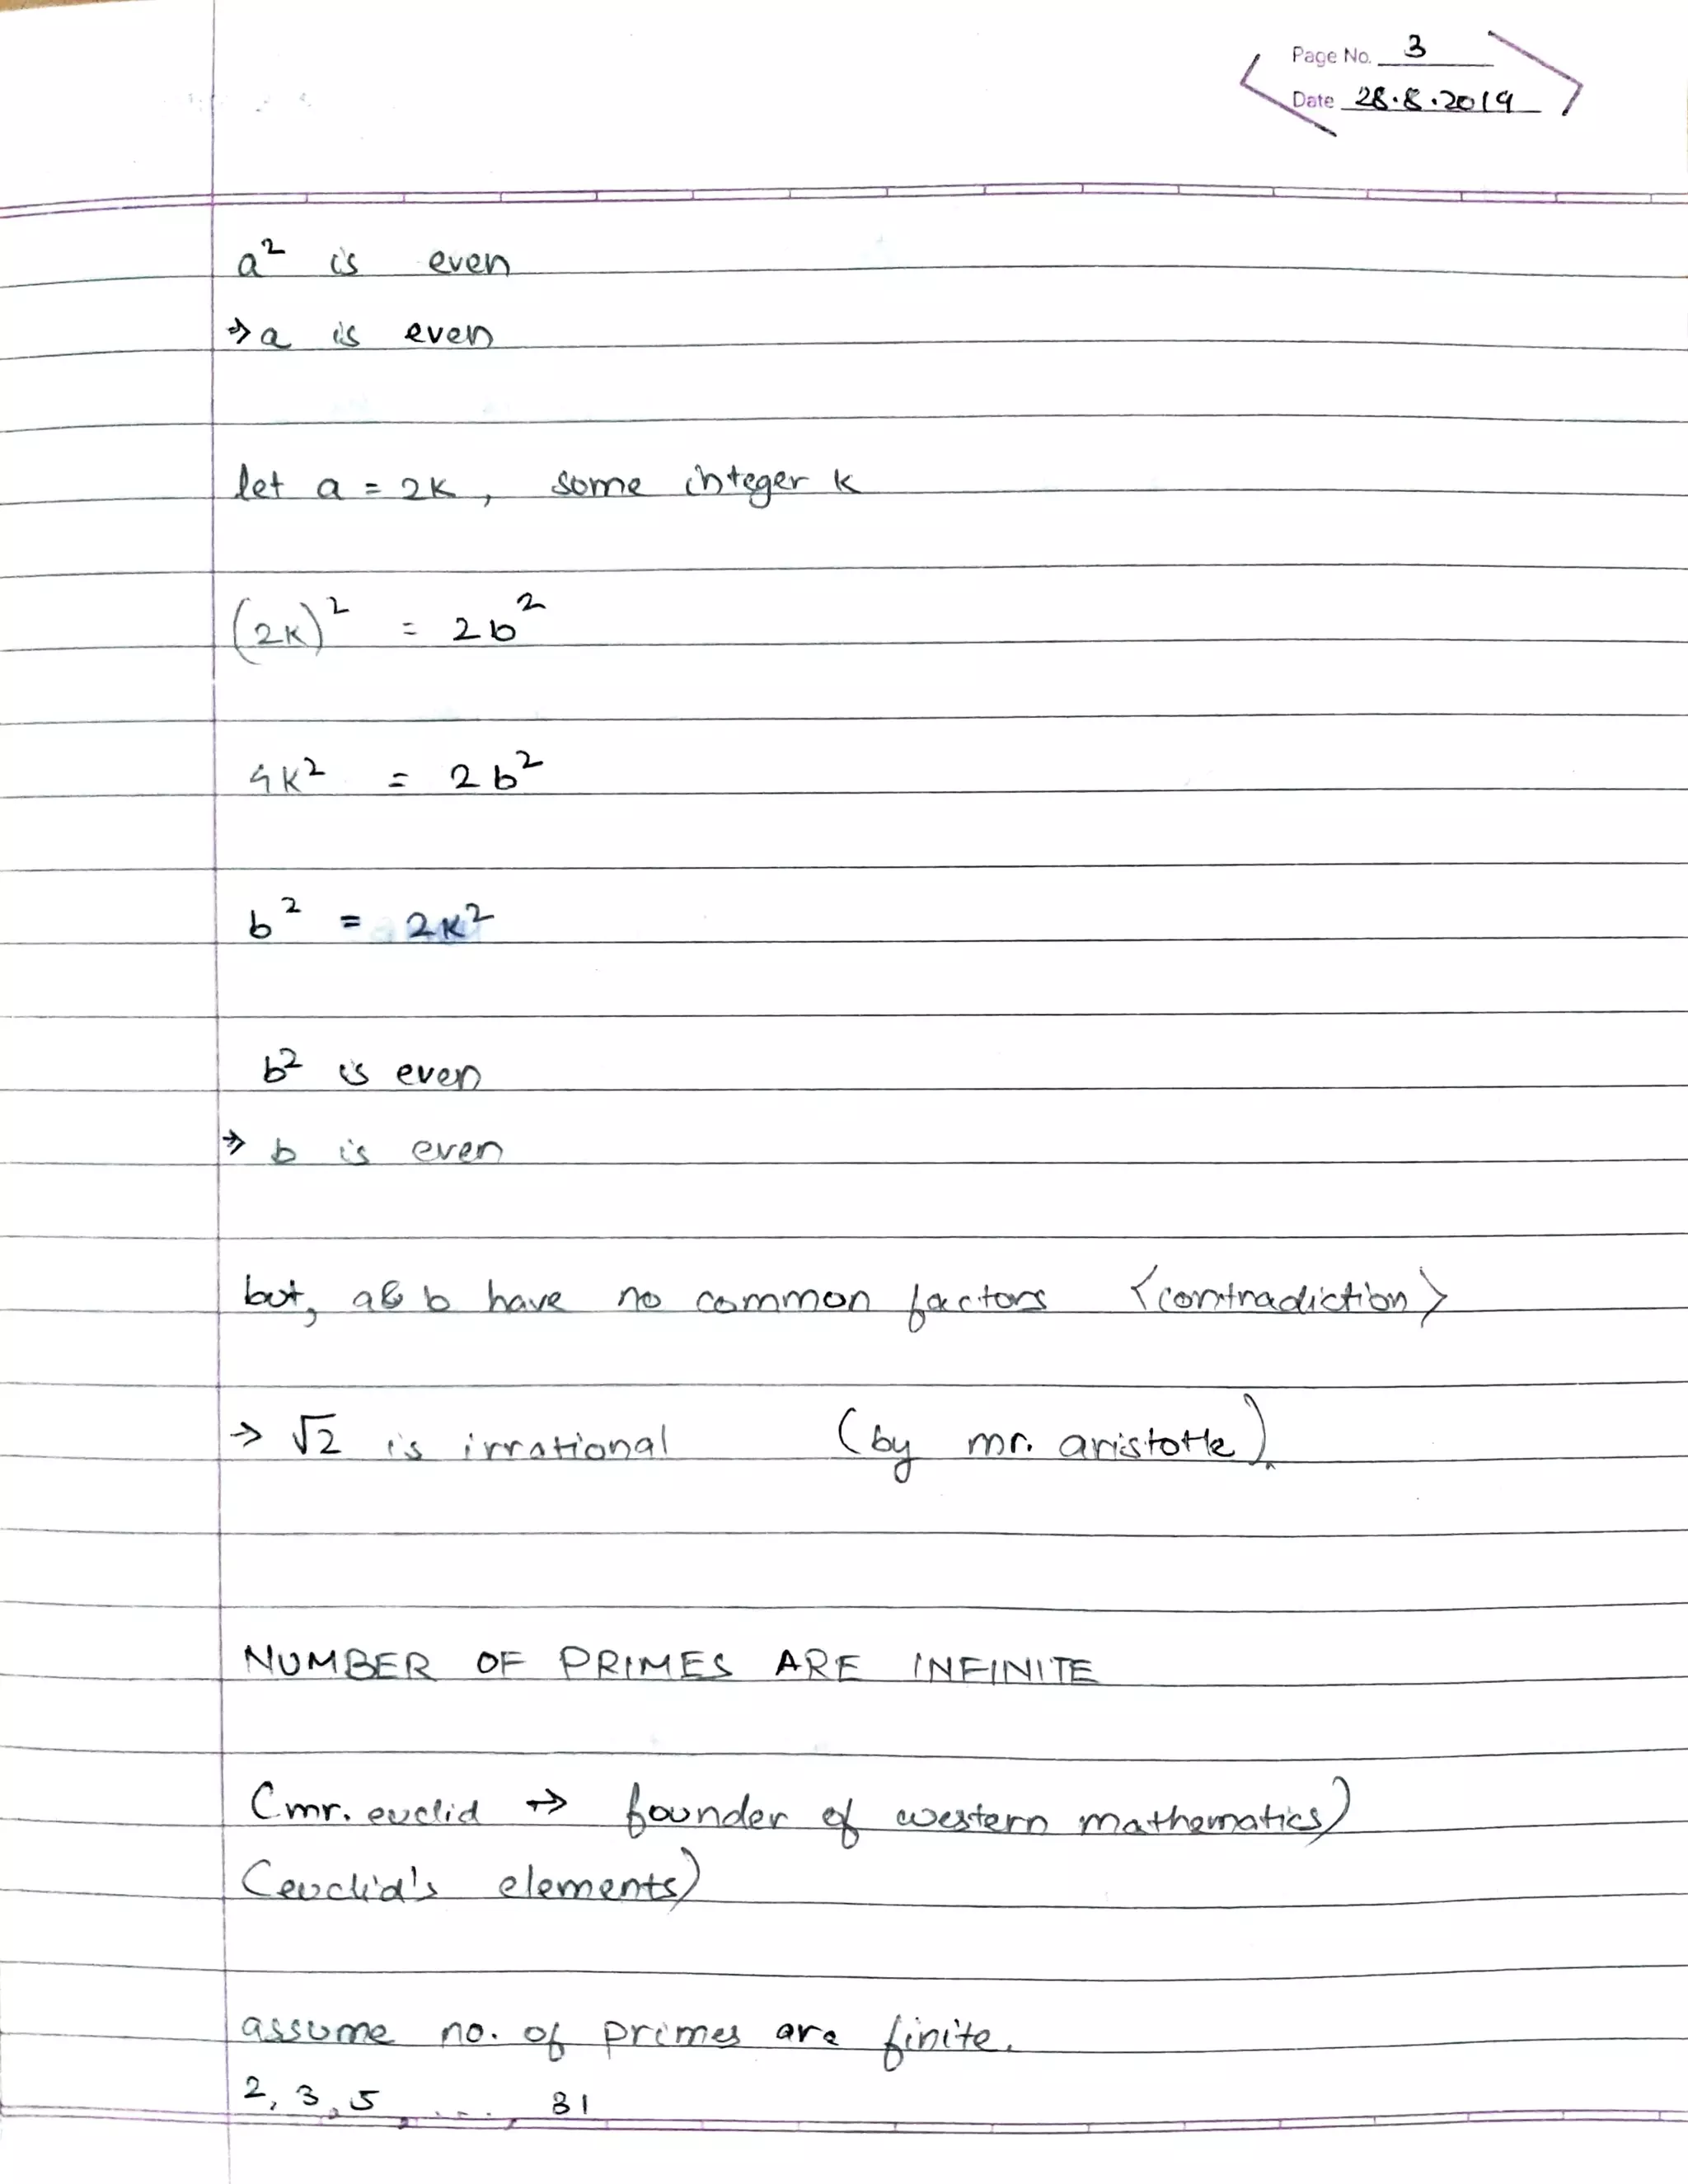 Page No. 3
Date 28.8.2019
a² is even
⇒ a is even
let a = 2k, some integer k
(2k)² = 2b²
4k² = 2b²
b² = 2k²
b² is even
⇒ b is even
but, a & b have no common factors <contradiction>
→ √2 is irrational (by mr. aristotle).
NUMBER OF PRIMES ARE INFINITE
(mr. euclid ⇒ founder of western mathematics)
(euclid's elements)
assume no. of primes are finite.
2, 3, 5, ...., 31